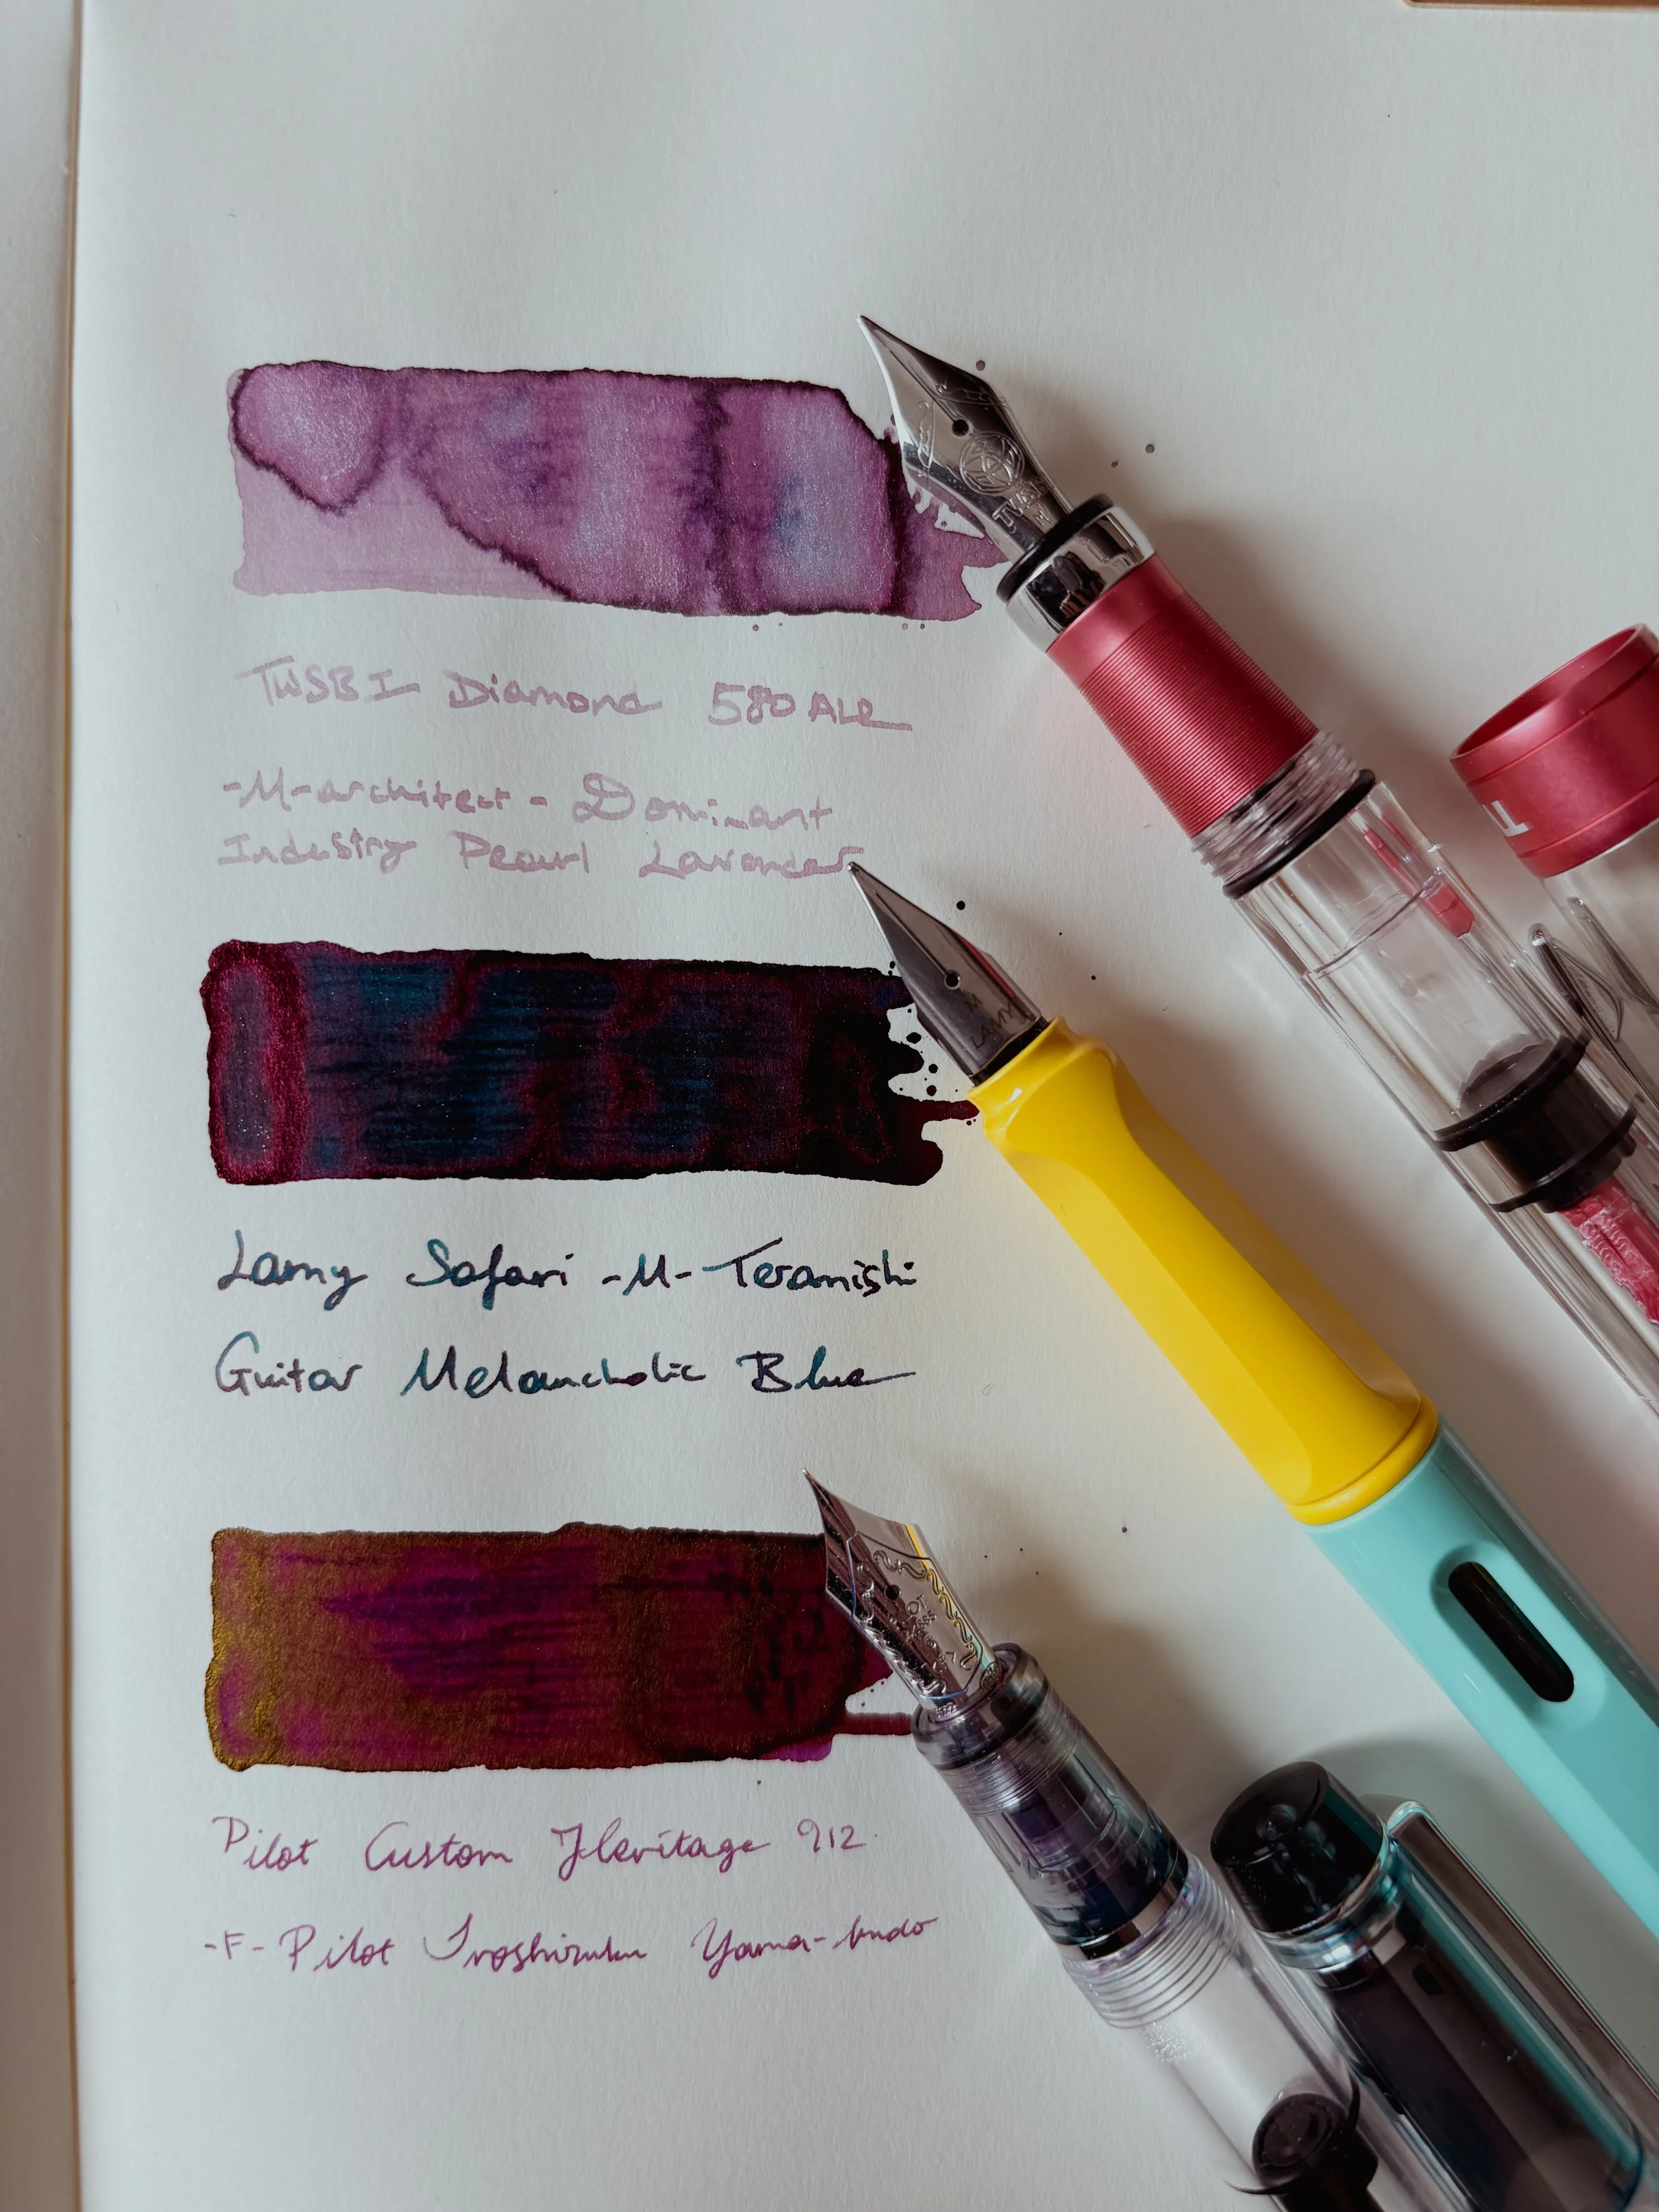 TWSBI Diamond 580 ALR
-M-architect - Dominant
Industry Pearl Lavender
M
LAMY
Lamy Safari -M- Teranishi
Guitar Melancholic Blue
Pilot Custom Heritage 912
-F- Pilot Iroshizuku Yama-budo